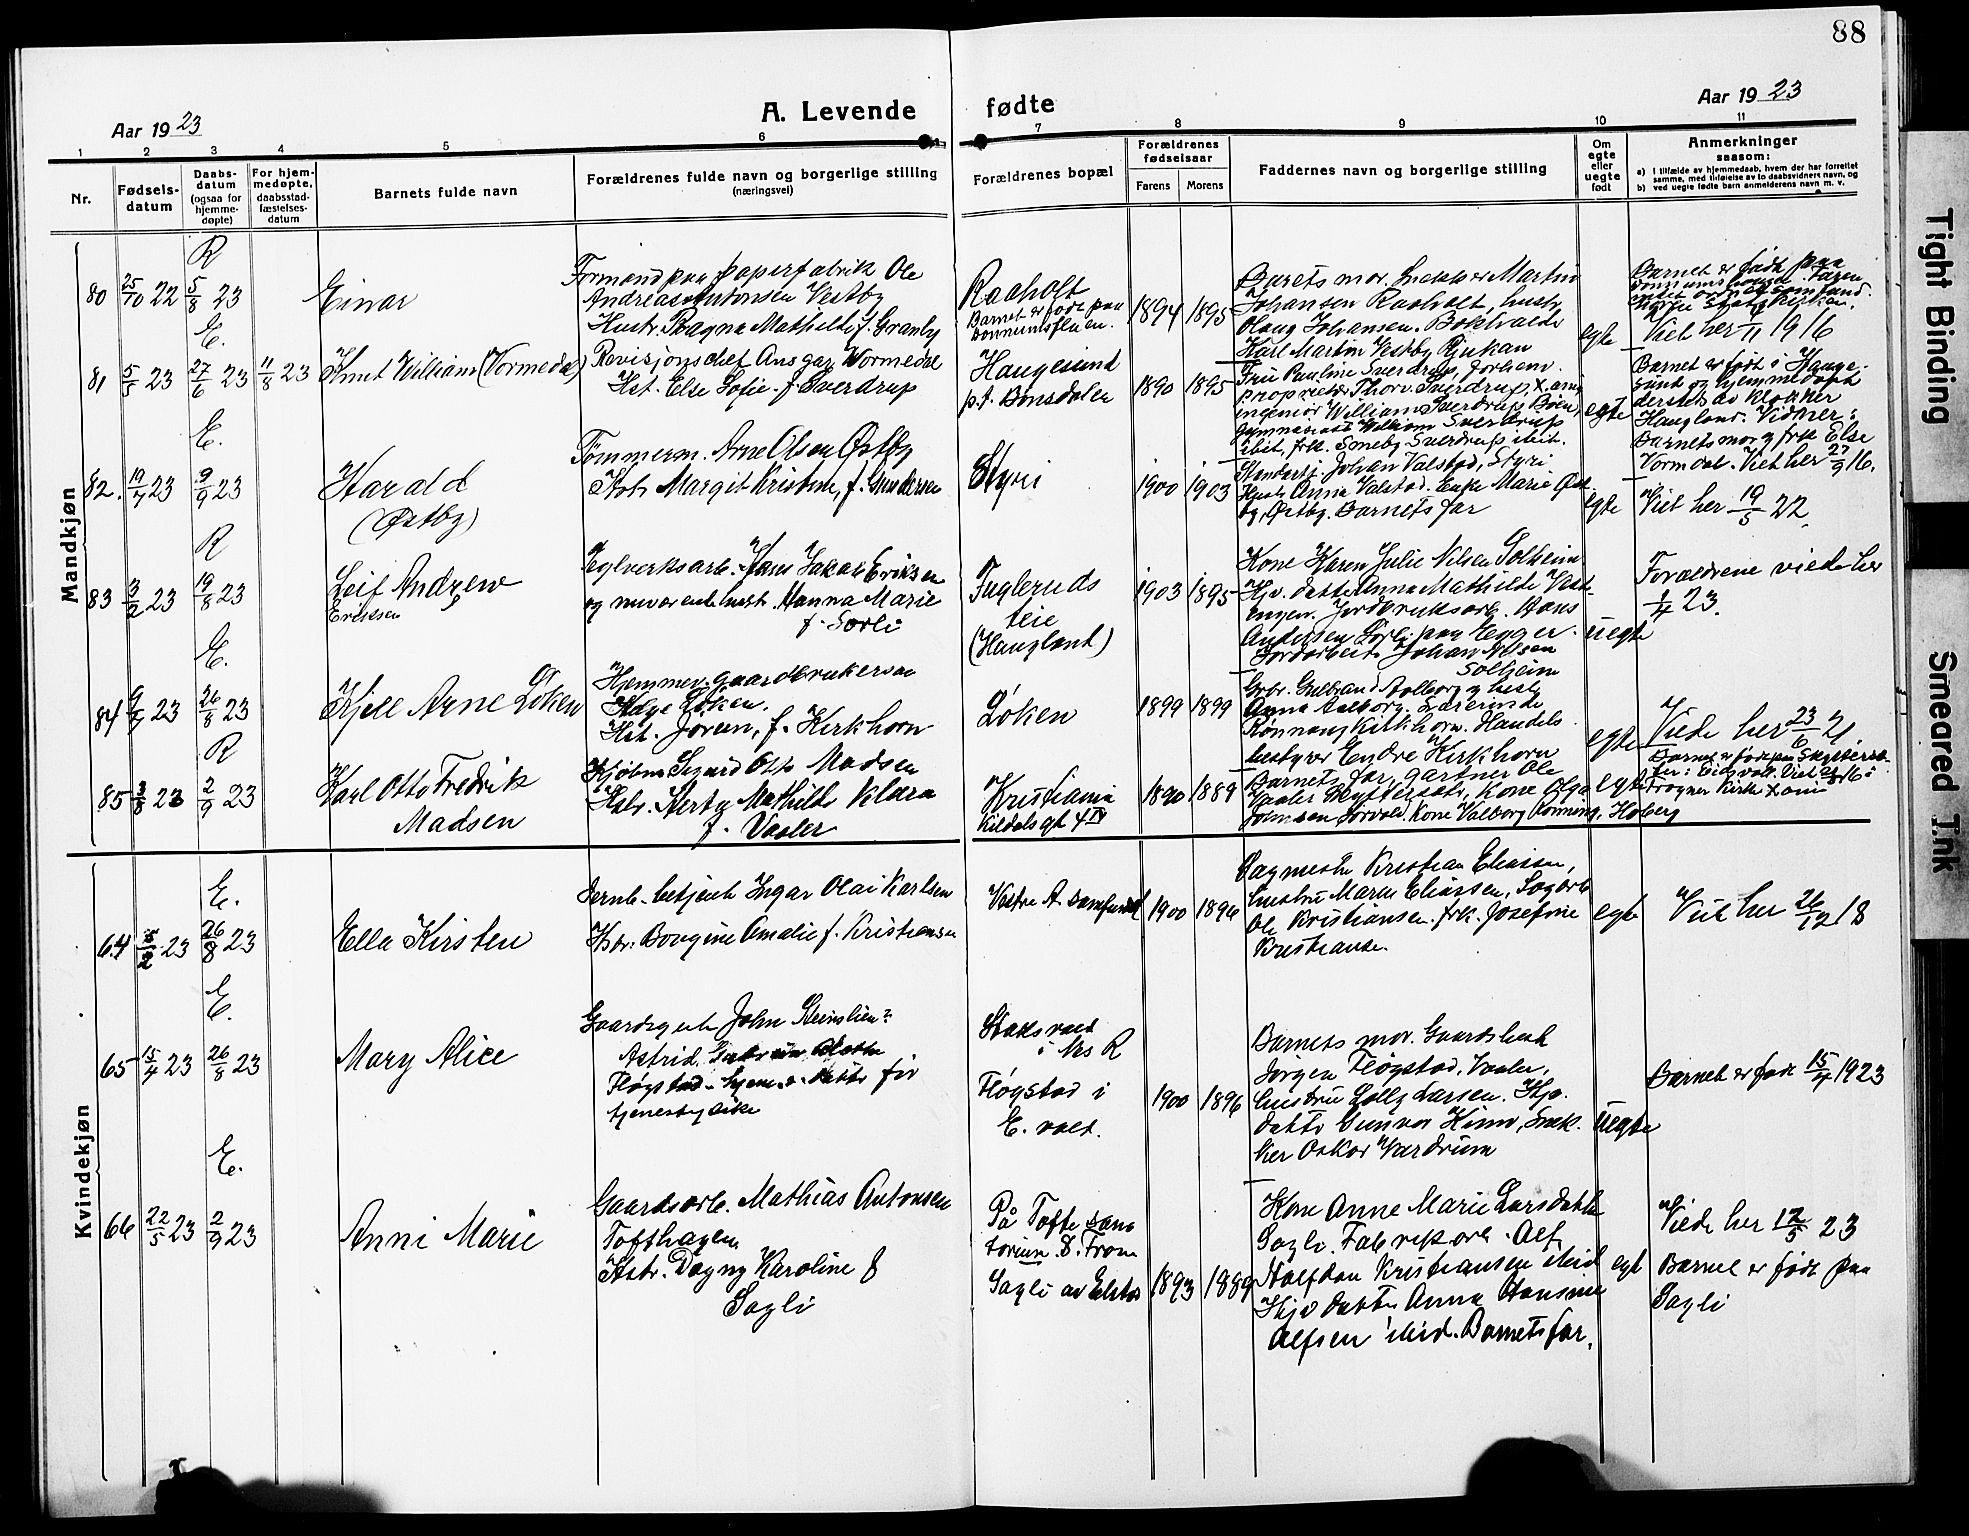 88
Aar 1923
A. Levende fødte
Aar 1923
1 2 3 4 5 6 7 8 9 10 11
Nr.
Fødsels-
datum
Daabs-
datum
(ogsaa for
hjemme-
døpte)
For hjem-
medøpte,
daabsstad-
fæstelses-
datum
Barnets fulde navn
Forældrenes fulde navn og borgerlige stilling
(næringsvei)
Forældrenes bopæl
Forældrenes
fødselsaar
Farens Morens
Faddernes navn og borgerlige stilling
Om
egte
eller
uegte
født
Anmerkninger
saasom:
a) i tilfælde av hjemmedaab, hvem der har forrettet
samme, med tilføielse av to daabsvidners navn, og
b) ved uegte fødte barn anmelderens navn m. v.
Mandkjøn
R
80 25/10 22 5/8 23
Einar
Formand paa papirfabrik Ole
Andreas Antonsen Vestby
Hustr. Ragna Mathilde f. Granby
Raaholt
Barnet er født paa
1894 1895
Barnets mor. Snekker Martin
Johansen Raaholt, hustr.
Olaug Johansen.
Karl Martin Vestby Rjukan
egte
Barnet er født paa
Viet her 1916
E.
81 5/5 23 27/6 23 11/8 23
Knut William (Vormedal)
Revisjonschef Ansgar Vormedal
Hst. Else Sofie f. Sverdrup
Haugesund
p.t. Bønsdalen
1890 1895
Fru Pauline Sverdrup,
proprietær Thorv. Sverdrup,
ingeniør William Sverdrup Bøen,
gymnasiast William Sverdrup
ibid, frk. Sverdrup ibid.
egte
Barnet er født i Hauge-
sund og hjemmedøpt
dersteds av klokker
Haugland. Vidner:
Barnets mor og frk Else
Vormedal. Viet her 27/9 16.
E.
82. 19/7 23 9/9 23
Harald
(Østby)
Tømmerm. Arne Olsen Østby
Hstr Margit Kristine, f. Gundersen
Styri
1900 1903
Johan Valstad, Styri
Hustr Anna Valstad. Enke Marie Øst-
by, Østby. Barnets far
egte
Viet her 19/5 22.
R
83 3/2 23 19/8 23
Leif Andrew
Eriksen
Teglverksarb. Hans Jakob Eriksen
og nuværende hust. Hanna Marie
f. Sørli
Fugleruds
teie
(Haugland)
1903 1895
Kone Karen Julie Nilsen Solheim
Hj. datter Anna Mathilde Vest-
engen. Jordbruksarb. Hans
Andersen Sørli
Jordarbeid. Johan Nilsen
Solheim
uegte
Forældrene viede her
1/4 23.
E.
84 9/7 23 26/8 23
Kjell Arne Løken
Hjemmev. gaardbrukersøn
Helge Løken.
Hst. Jorun, f. Kirkhorn
Løken
1899 1899
Gbr. Gulbrand Aalborg og hustr
Anna Aalborg. Lærerinde
Rønnaug Kirkhorn. Handels-
bestyrer Endre Kirkhorn
egte
Viede her 23/6 21
R
85 3/8 23 2/9 23
Karl Otto Fredrik
Madsen
Kjøbm Sigurd Otto Madsen
Hstr. Herty Mathilde Klara
f. Vaaler
Kristiania
Kildalsgt 4 IV
1890 1889
Barnets far, gartner Ole
Vaaler Skyttersæter, Kone Olga
Johnsen Sørvald. Kone Valborg Rønning, Hoberg
egte
Frogner kirke
Kvindekjøn
E.
64 5/2 23 26/8 23
Ella Kirsten
Jernb. betjent Ingar Olai Karlsen
Hstr. Borgine Amalie f. Kristiansen
Vestre A. samfund
1900 1896
Vagnmester Kristian Eliassen,
hustru Maren Eliassen, Sagarb
Ole Kristiansen. frk. Josefine
Kristiansen
egte
Viet her 26/12 18
E.
65 15/4 23 26/8 23
Mary Alice
Gaardsgut John Steinslien:
Astrid
Fløgstad. Hjem. datter for
tjenestepike
i Nes R
Fløgstad i
E. voll.
1900 1896
Barnets mor. Gaardsbruk
Jørgen Fløgstad, Vaaler,
hustru Lolly Larsen. Hjv.
datter Gunvor Himo, Snek-
ker Oskar Værdrum
uegte
Barnet er født 15/4 1923
E.
66 22/5 23 2/9 23
Anni Marie
Gaardsarb. Mathias Antonsen
Tofthagen
Hstr. Dagny Karoline f
Sagli
På Tofte sana
torium. D. From
Sagli av Eidsvold
1893 1889
Kone Anne Marie Larsdatter
Sagli. Fabrikarb. Alf
Halfdan Kristiansen ibid
Hjv datter Anna Hansine
Alfsen ibid. Barnets far.
egt
Viede her 12/5 23
Barnet er født paa
Sagli
Tight Binding
Smeared Ink